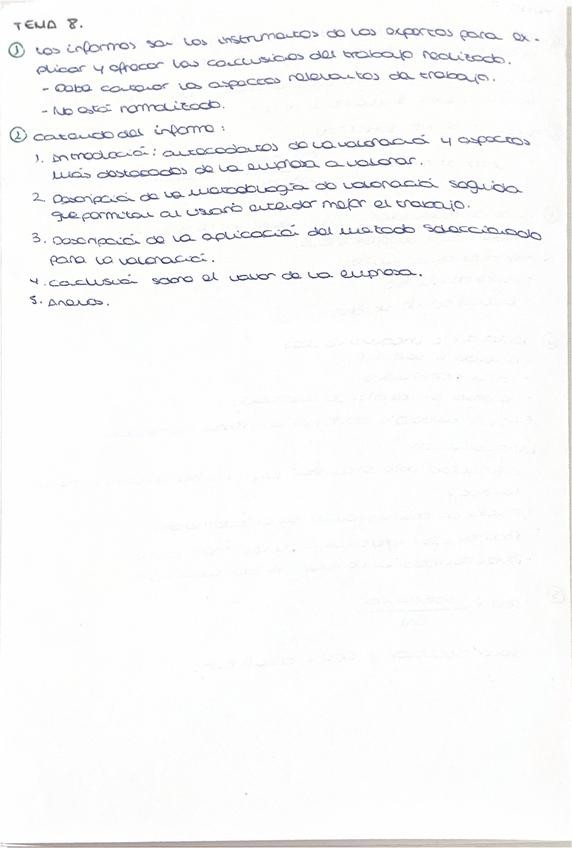 TEMA 8.
① Los informes son los instrumentos de los expertos para ex-
plicar y ofrecer las conclusiones del trabajo realizado.
- Debe contener los aspectos relevantes de trabajo.
- No está normalizado.
② Contenido del informe:
1. Introducción: antecedentes de la valoración y aspectos
más destacados de la empresa a valorar.
2. Descripción de la metodología de valoración seguida
que permitan al usuario entender mejor el trabajo.
3. Descripción de la aplicación del método seleccionado
para la valoración.
4. Conclusión sobre el valor de la empresa.
5. Anexos.